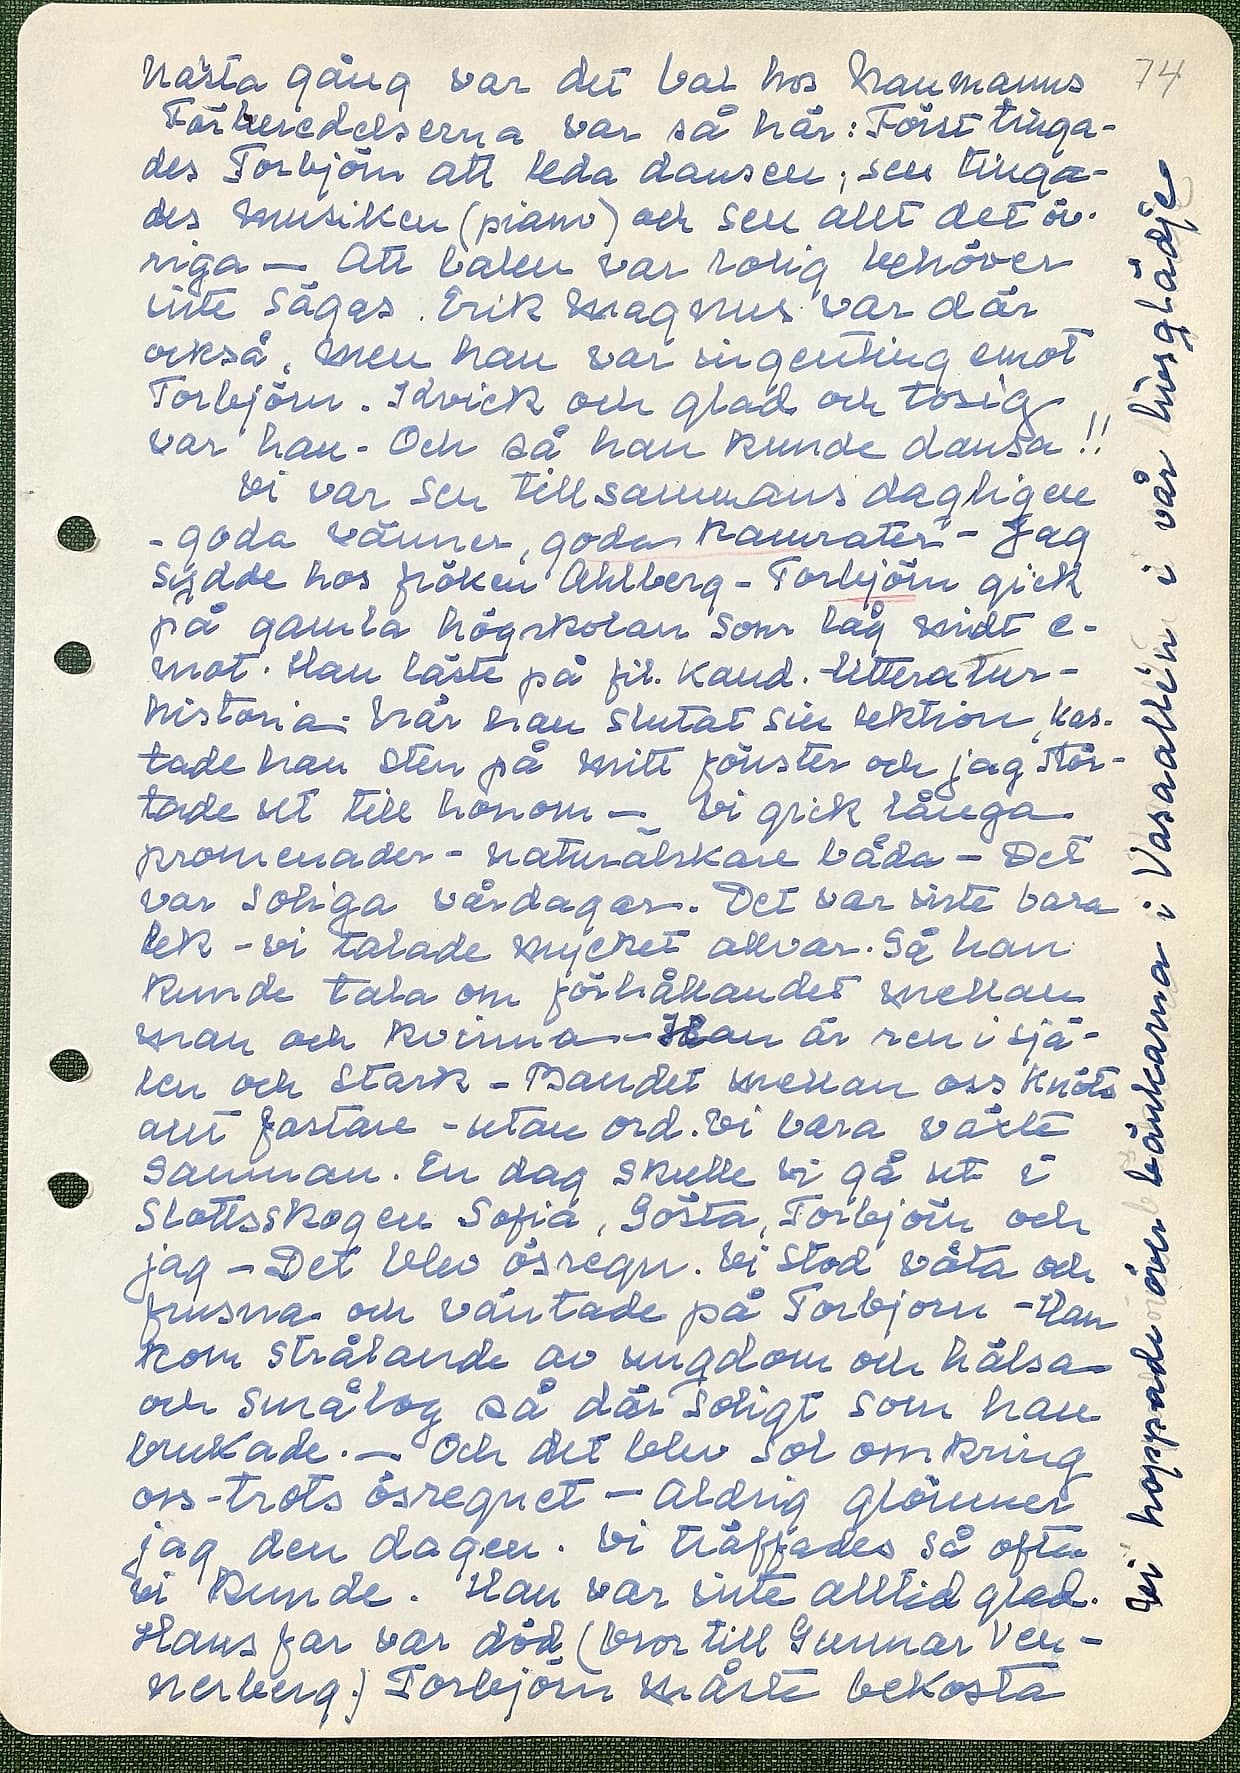 74
Nästa gång var det bal hos Naumanns
Förberedelserna var så här: Först tinga-
des Torbjörn att leda dansen, sen tinga-
des musiken (piano) och sen allt det öv-
riga — Att balen var rolig behöver
inte sägas. Erik Magnus var där
också, men han var ingenting emot
Torbjörn. Kvick och glad och tosig
var han - Och så han kunde dansa!!
Vi var sen tillsammans dagligen
- goda vänner, goda kamrater - Jag
sydde hos fröken Ahlberg - Torbjörn gick
på gamla högskolan som låg midt e-
mot. Han läste på fil. kand. litteratur-
historia. När han slutat sin lektion, kas-
tade han sten på mitt fönster och jag stör-
tade ut till honom — Vi gick långa
promenader - naturälskare båda — Det
var soliga vårdagar. Det var inte bara
lek - vi talade mycket allvar. Så han
kunde tala om förhållandet mellan
man och kvinna - Han är ren i sjä-
len och stark - Bandet mellan oss knöts
allt fastare - utan ord. Vi bara växte
samman. En dag skulle vi gå ut i
Slottsskogen Sofia, Gösta, Torbjörn och
jag — Det blev ösregn. Vi stod våta och
frusna och väntade på Torbjorn - Han
kom strålande av ungdom och hälsa
och smålog så där soligt som han
brukade. — Och det blev sol omkring
oss - trots ösregnet — Aldrig glömmer
jag den dagen. Vi träffades så ofta
vi kunde. Han var inte alltid glad.
Hans far var död (bror till Gunnar Ven-
nerberg.) Torbjörn måste bekosta
Vi hoppade över bänkarna i Vasaallén i vår livsglädje